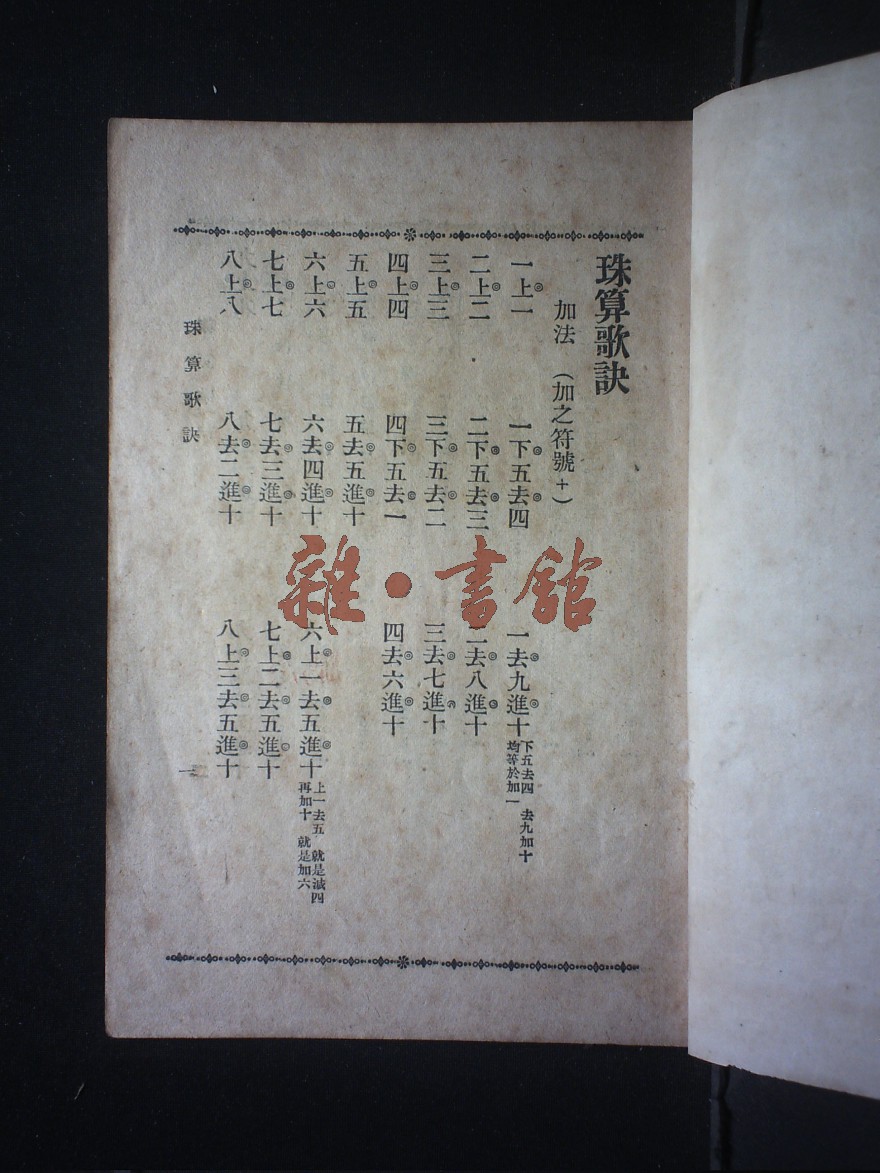 珠算歌訣
加法　（加之符號＋）
一上一　一下五去四　一去九進十　下五去四　去九加十
均等於加一
二上二　二下五去三　二去八進十
三上三　三下五去二　三去七進十
四上四　四下五去一　四去六進十
五上五　五去五進十
六上六　六去四進十　六上一去五進十　上一去五　就是減四
再加十　就是加六
七上七　七去三進十　七上二去五進十
八上八　八去二進十　八上三去五進十
珠算歌訣　一
雜・書館